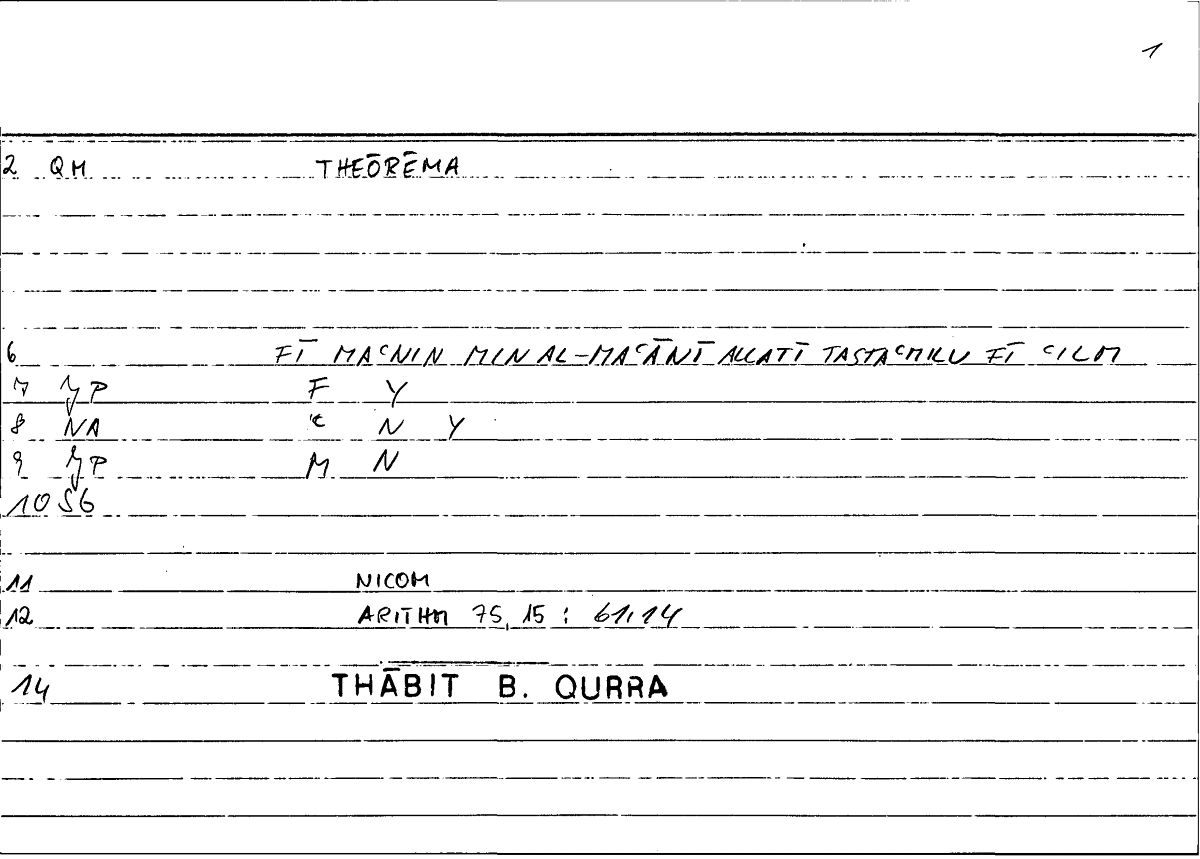 1
2 QM THEŌRĒMA
6 FĪ MAʿNIN MIN AL-MAʿĀNĪ ALLATĪ TASTAʿMILU FĪ ʿILM
7 YP F Y
8 NA ʿ N Y
9 YP M N
10 S6
11 NICOM
12 ARITHM 75,15 : 61,14
14 THĀBIT B. QURRA